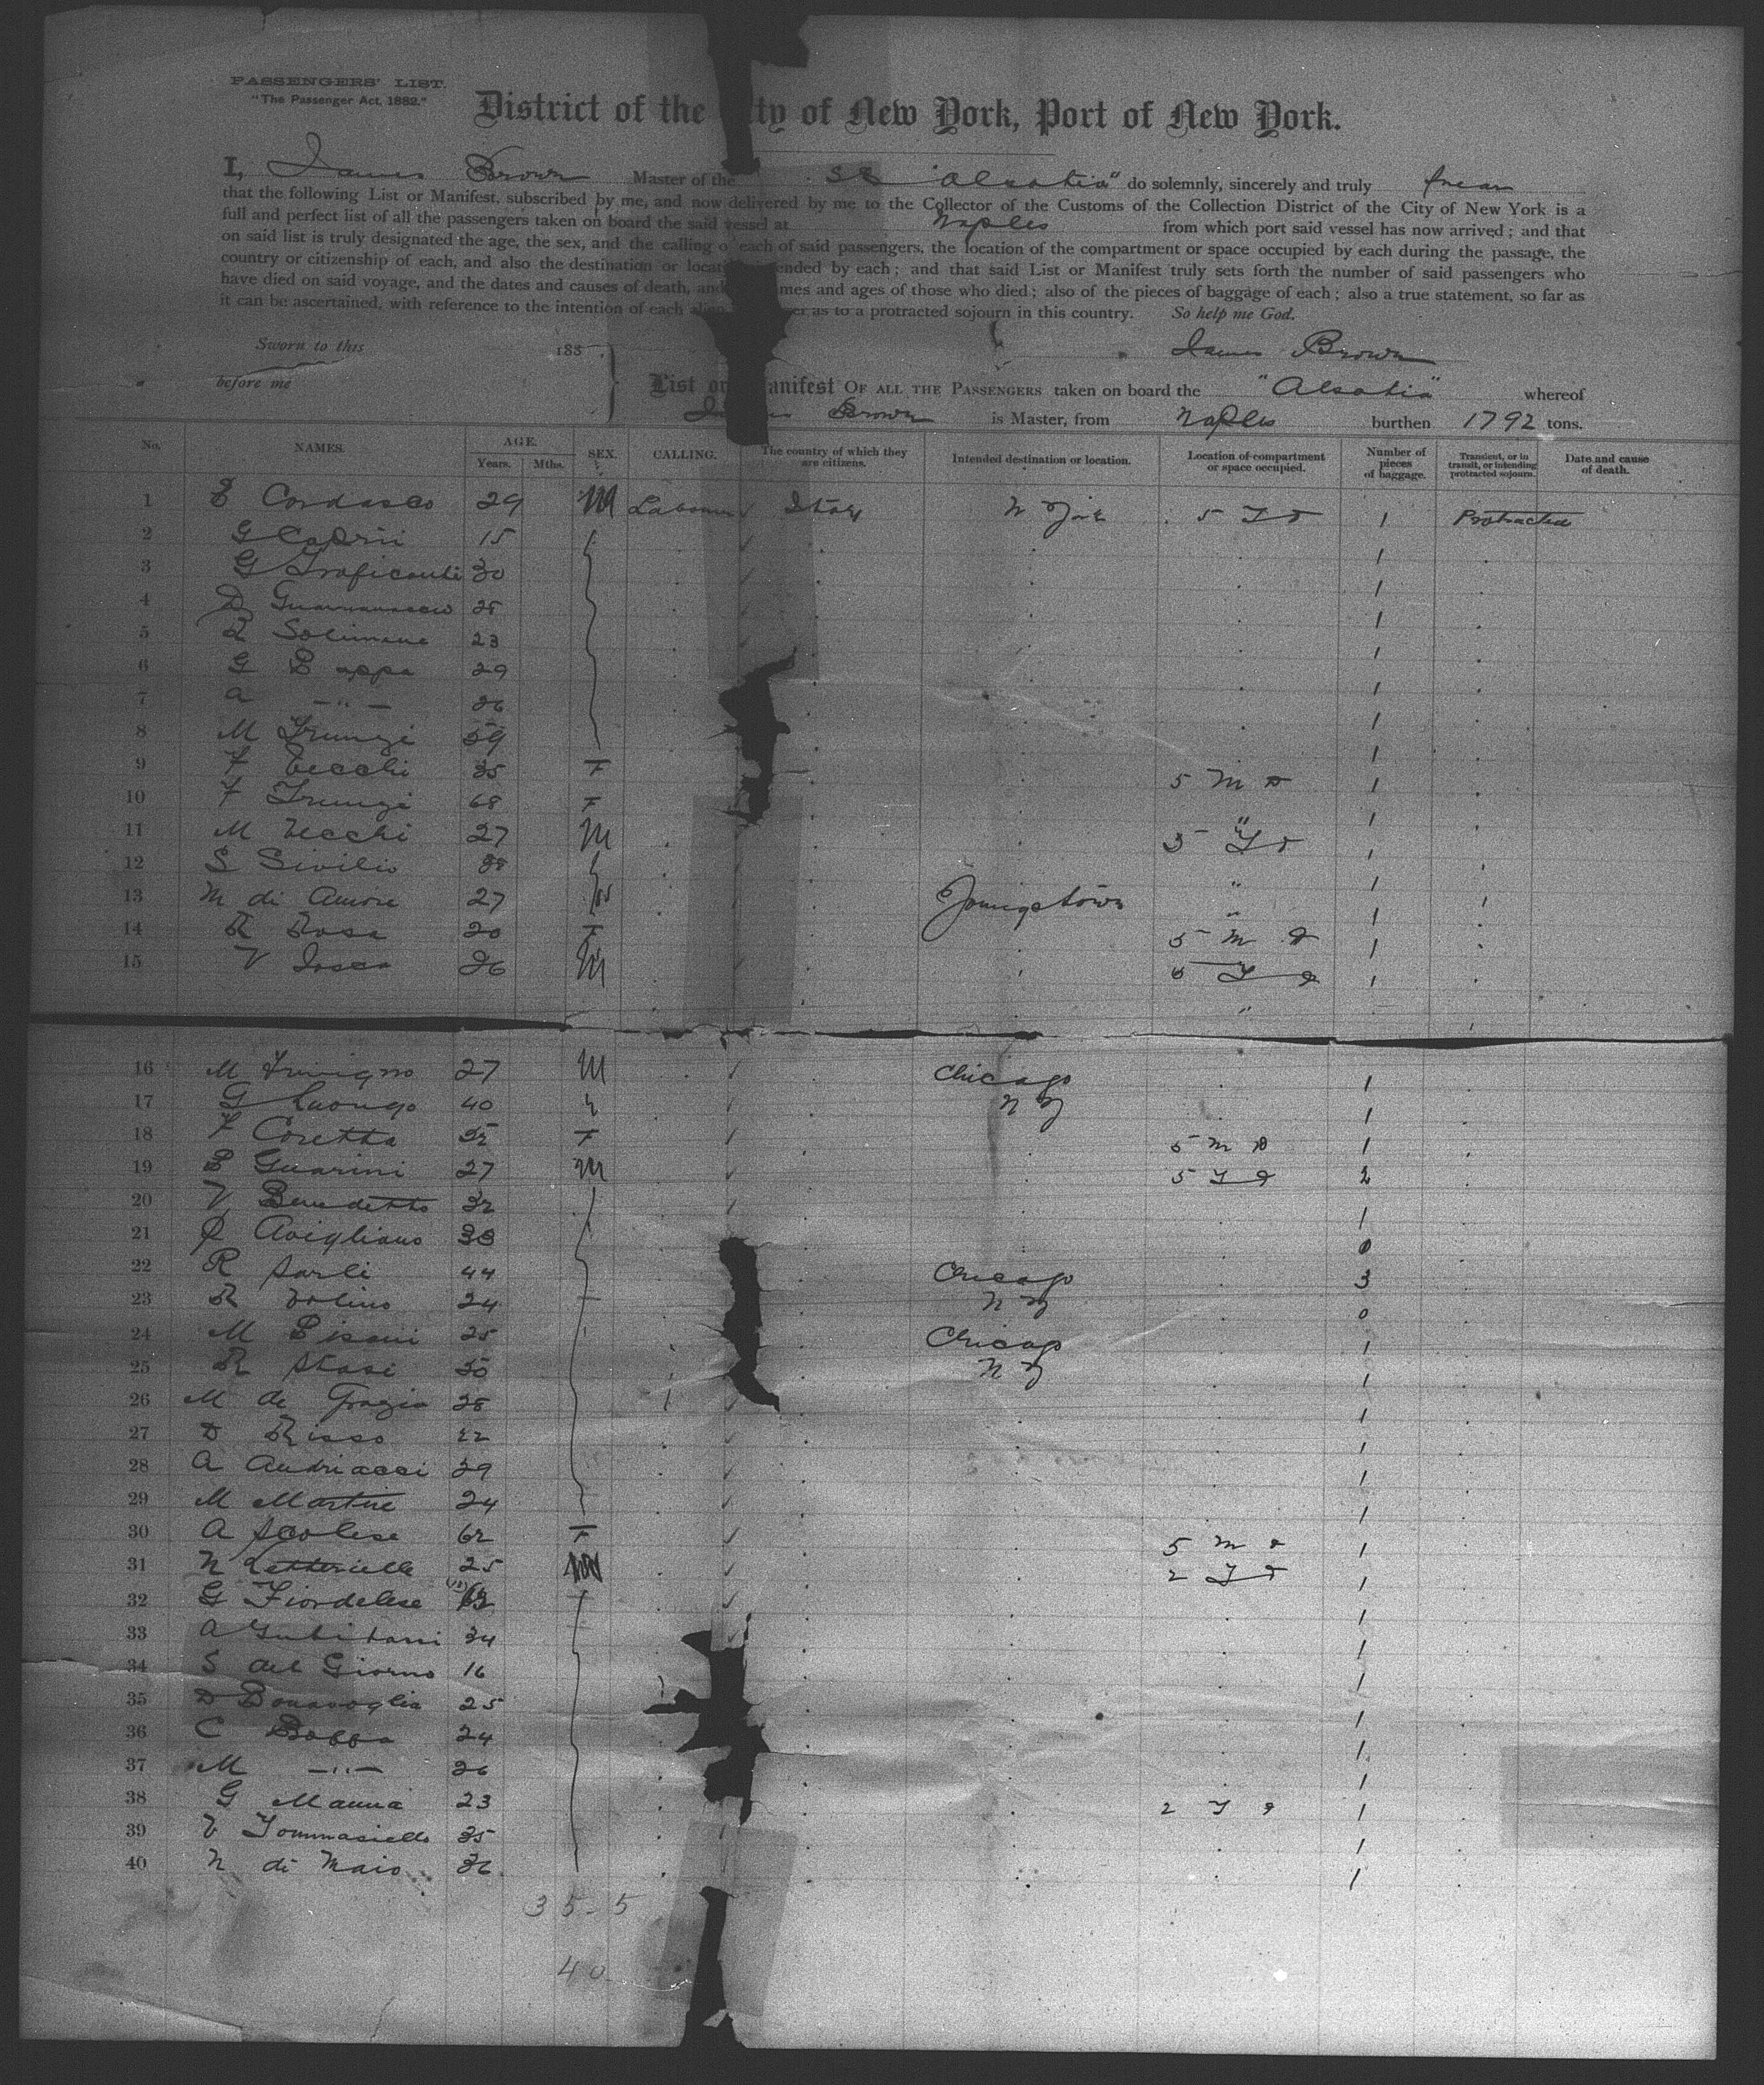 PASSENGERS' LIST.
"The Passenger Act, 1882."
District of the ty of New York, Port of New York.
I, James Brown Master of the SS "Alsatia" do solemnly, sincerely and truly swear
that the following List or Manifest, subscribed by me, and now delivered by me to the Collector of the Customs of the Collection District of the City of New York is a
full and perfect list of all the passengers taken on board the said vessel at Naples from which port said vessel has now arrived; and that
on said list is truly designated the age, the sex, and the calling o each of said passengers, the location of the compartment or space occupied by each during the passage, the
country or citizenship of each, and also the destination or locati ended by each; and that said List or Manifest truly sets forth the number of said passengers who
have died on said voyage, and the dates and causes of death, and mes and ages of those who died; also of the pieces of baggage of each; also a true statement, so far as
it can be ascertained, with reference to the intention of each alien er as to a protracted sojourn in this country. So help me God.
Sworn to this 188 James Brown
before me
List or anifest OF ALL THE PASSENGERS taken on board the "Alsatia" whereof
James Brown is Master, from Naples burthen 1792 tons.
No. NAMES. AGE. Years. Mths. SEX. CALLING. The country of which they are citizens. Intended destination or location. Location of compartment or space occupied. Number of pieces of baggage. Transient, or in transit, or intending protracted sojourn. Date and cause of death.
1 Cordasco 29 M Labourer Italy N York 5 1 Protracted
2 G Caprii 15 1
3 G Graficanti 30 1
4 D 28 1
5 R Solimene 23 1
6 G Pappa 29 1
7 a —"— 26 1
8 M Trunzi 59 1
9 F Vecchi 35 F 5 M D 1
10 F Trunzi 68 F " 1
11 M Vecchi 27 M 5 1
12 S Sivilio " 1
13 M di Amore 27 Youngstown " 1
14 R Rosa 20 F 5 M D 1
15 V Iosca 26 M 1
"
16 M 27 M Chicago 1
17 G Luongo 40 N Y 1
18 F Coretta 32 F 5 M D 1
19 Guarini 27 M 5 2
20 V Benedetto 32 1
21 Avigliano 38 0
22 R Sarli 44 Chicago 3
23 R Volino 24 N Y 0
24 M Pisani 25 Chicago 1
25 R Stasi 50 N Y 1
26 M de Grazia 28 1
27 D Risso 22 1
28 a Andriacci 29 1
29 M Martire 24 1
30 a Scolese 62 F 5 M D 1
31 N Letterielle 25 M 2 1
32 G Fiordelese 1
33 a Gubitosi 34 1
34 S del Giorno 16 1
35 D Bonavoglia 25 1
36 C Bobba 24 1
37 M —"— 26 1
38 G Manna 23 2 1
39 V Tommasiello 35 1
40 N di Maio 36 1
35-5
40